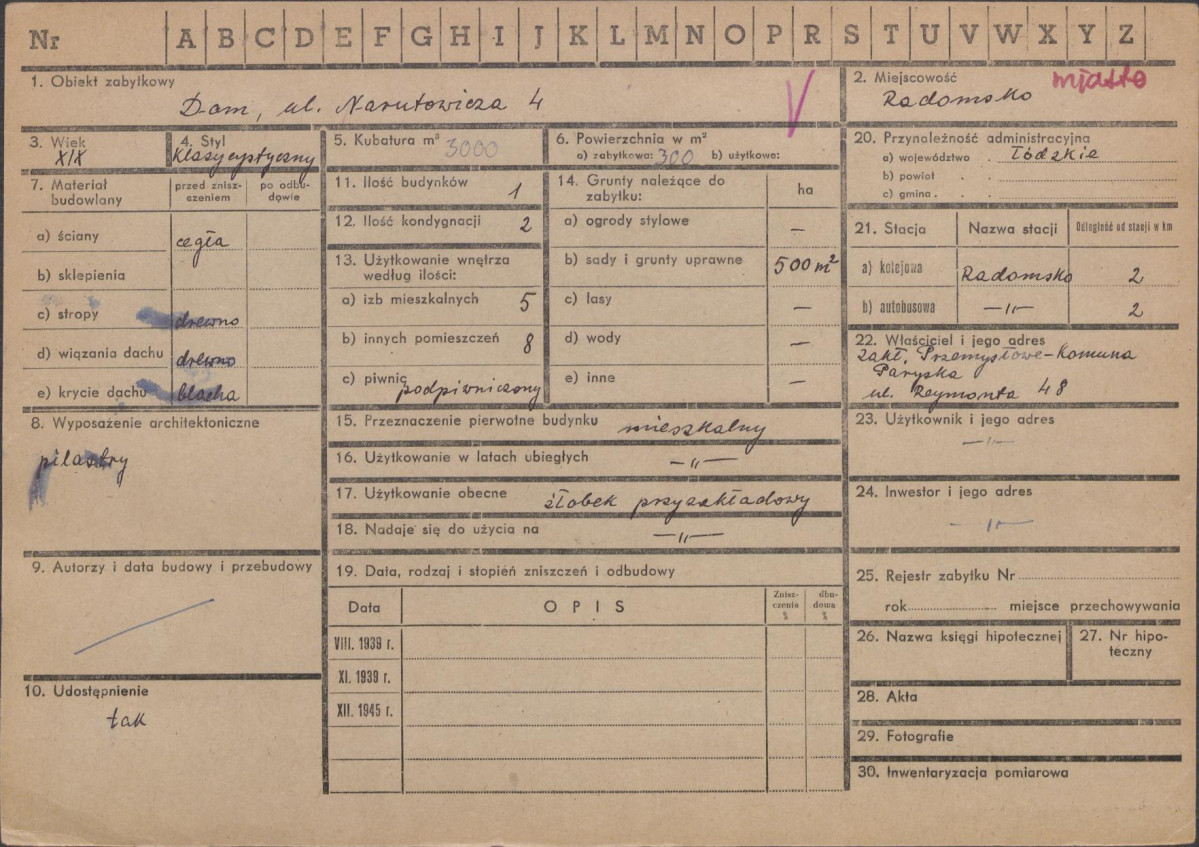 Nr A B C D E F G H I J K L M N O P R S T U V W X Y Z
1. Obiekt zabytkowy
Dom, ul. Narutowicza 4
V
2. Miejscowość miasto
Radomsko
3. Wiek
XIX
4. Styl
Klasycystyczny
5. Kubatura m³ 3000
6. Powierzchnia w m²
a) zabytkowa: 300 b) użytkowe:
7. Materiał budowlany
przed znisz-
czeniem
po odbu-
dowie
a) ściany cegła
b) sklepienia
c) stropy drewno
d) wiązania dachu drewno
e) krycie dachu blacha
8. Wyposażenie architektoniczne
pilastry
9. Autorzy i data budowy i przebudowy
10. Udostępnienie
tak
11. Ilość budynków 1
12. Ilość kondygnacji 2
13. Użytkowanie wnętrza
według ilości:
a) izb mieszkalnych 5
b) innych pomieszczeń 8
c) piwnic podpiwniczony
14. Grunty należące do
zabytku:
ha
a) ogrody stylowe —
b) sady i grunty uprawne 500 m²
c) lasy —
d) wody —
e) inne —
15. Przeznaczenie pierwotne budynku mieszkalny
16. Użytkowanie w latach ubiegłych —〃—
17. Użytkowanie obecne żłobek przyzakładowy
18. Nadaje się do użycia na —〃—
19. Data, rodzaj i stopień zniszczeń i odbudowy
Data OPIS
Znisz-
czenia
%
dbu-
dowa
%
VIII. 1939 r.
XI. 1939 r.
XII. 1945 r.
20. Przynależność administracyjna
a) województwo . łódzkie
b) powiat . .
c) gmina . .
21. Stacja Nazwa stacji Odległość od stacji w km
a) kolejowa Radomsko 2
b) autobusowa —〃— 2
22. Właściciel i jego adres
Zakł. Przemysłowe-Komuna
Paryska
ul. Reymonta 48
23. Użytkownik i jego adres
—〃—
24. Inwestor i jego adres
—〃—
25. Rejestr zabytku Nr
rok miejsce przechowywania
26. Nazwa księgi hipotecznej
27. Nr hipo-
teczny
28. Akta
29. Fotografie
30. Inwentaryzacja pomiarowa